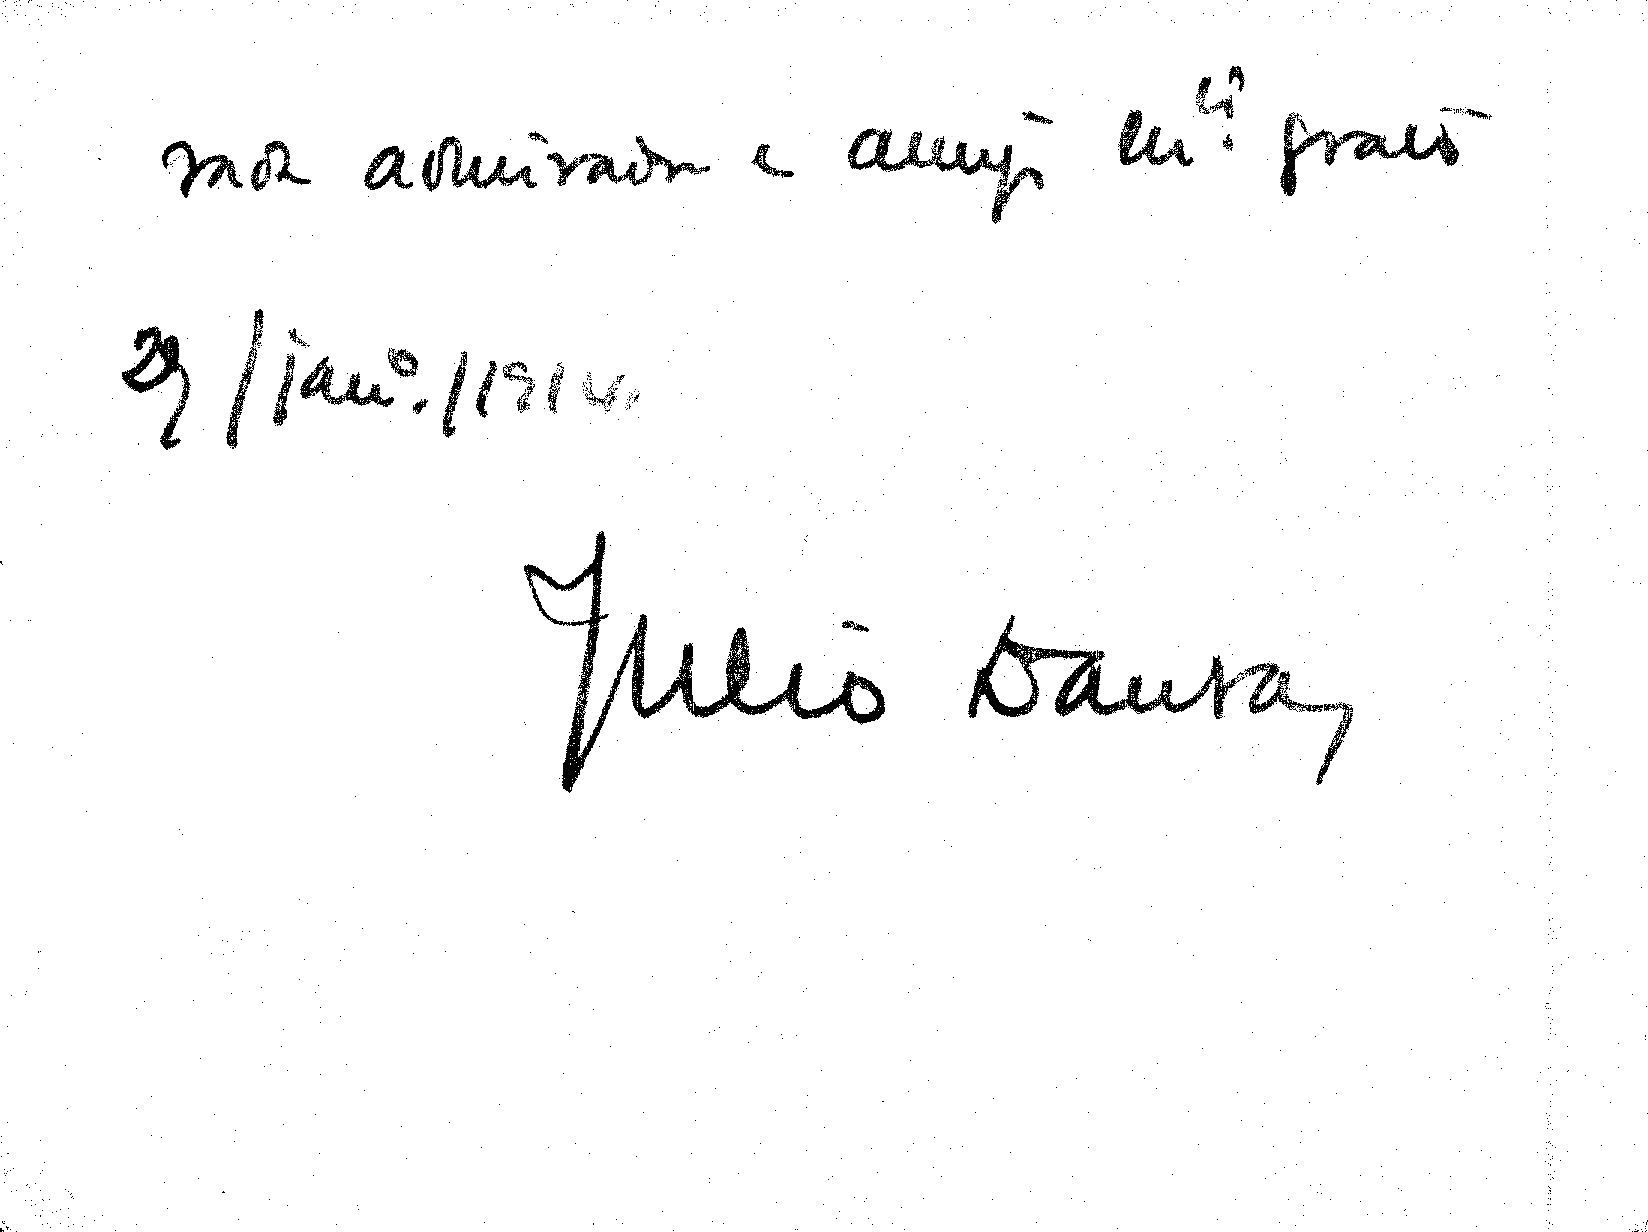 admirador e amigo m.to grato
29/jan.o/1914.
Julio Dantas